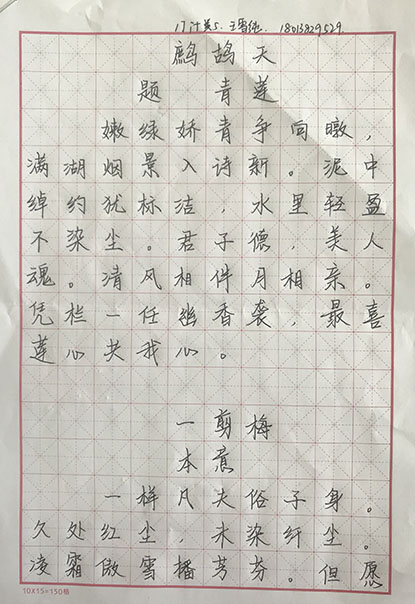 17计类5. 王雪纯. 18013829529.
鹧鸪天
题 青莲
嫩绿娇青争向暾，
满湖烟景入诗新。泥中
绰约犹标洁，水里轻盈
不染尘。君子德，美人
魂。清风相伴月相亲。
凭栏一任幽香袭，最喜
莲心共我心。
一剪梅
本意
一样凡夫俗子身。
久处红尘，未染纤尘。
凌霜傲雪播芳芬。但愿
10X15=150格